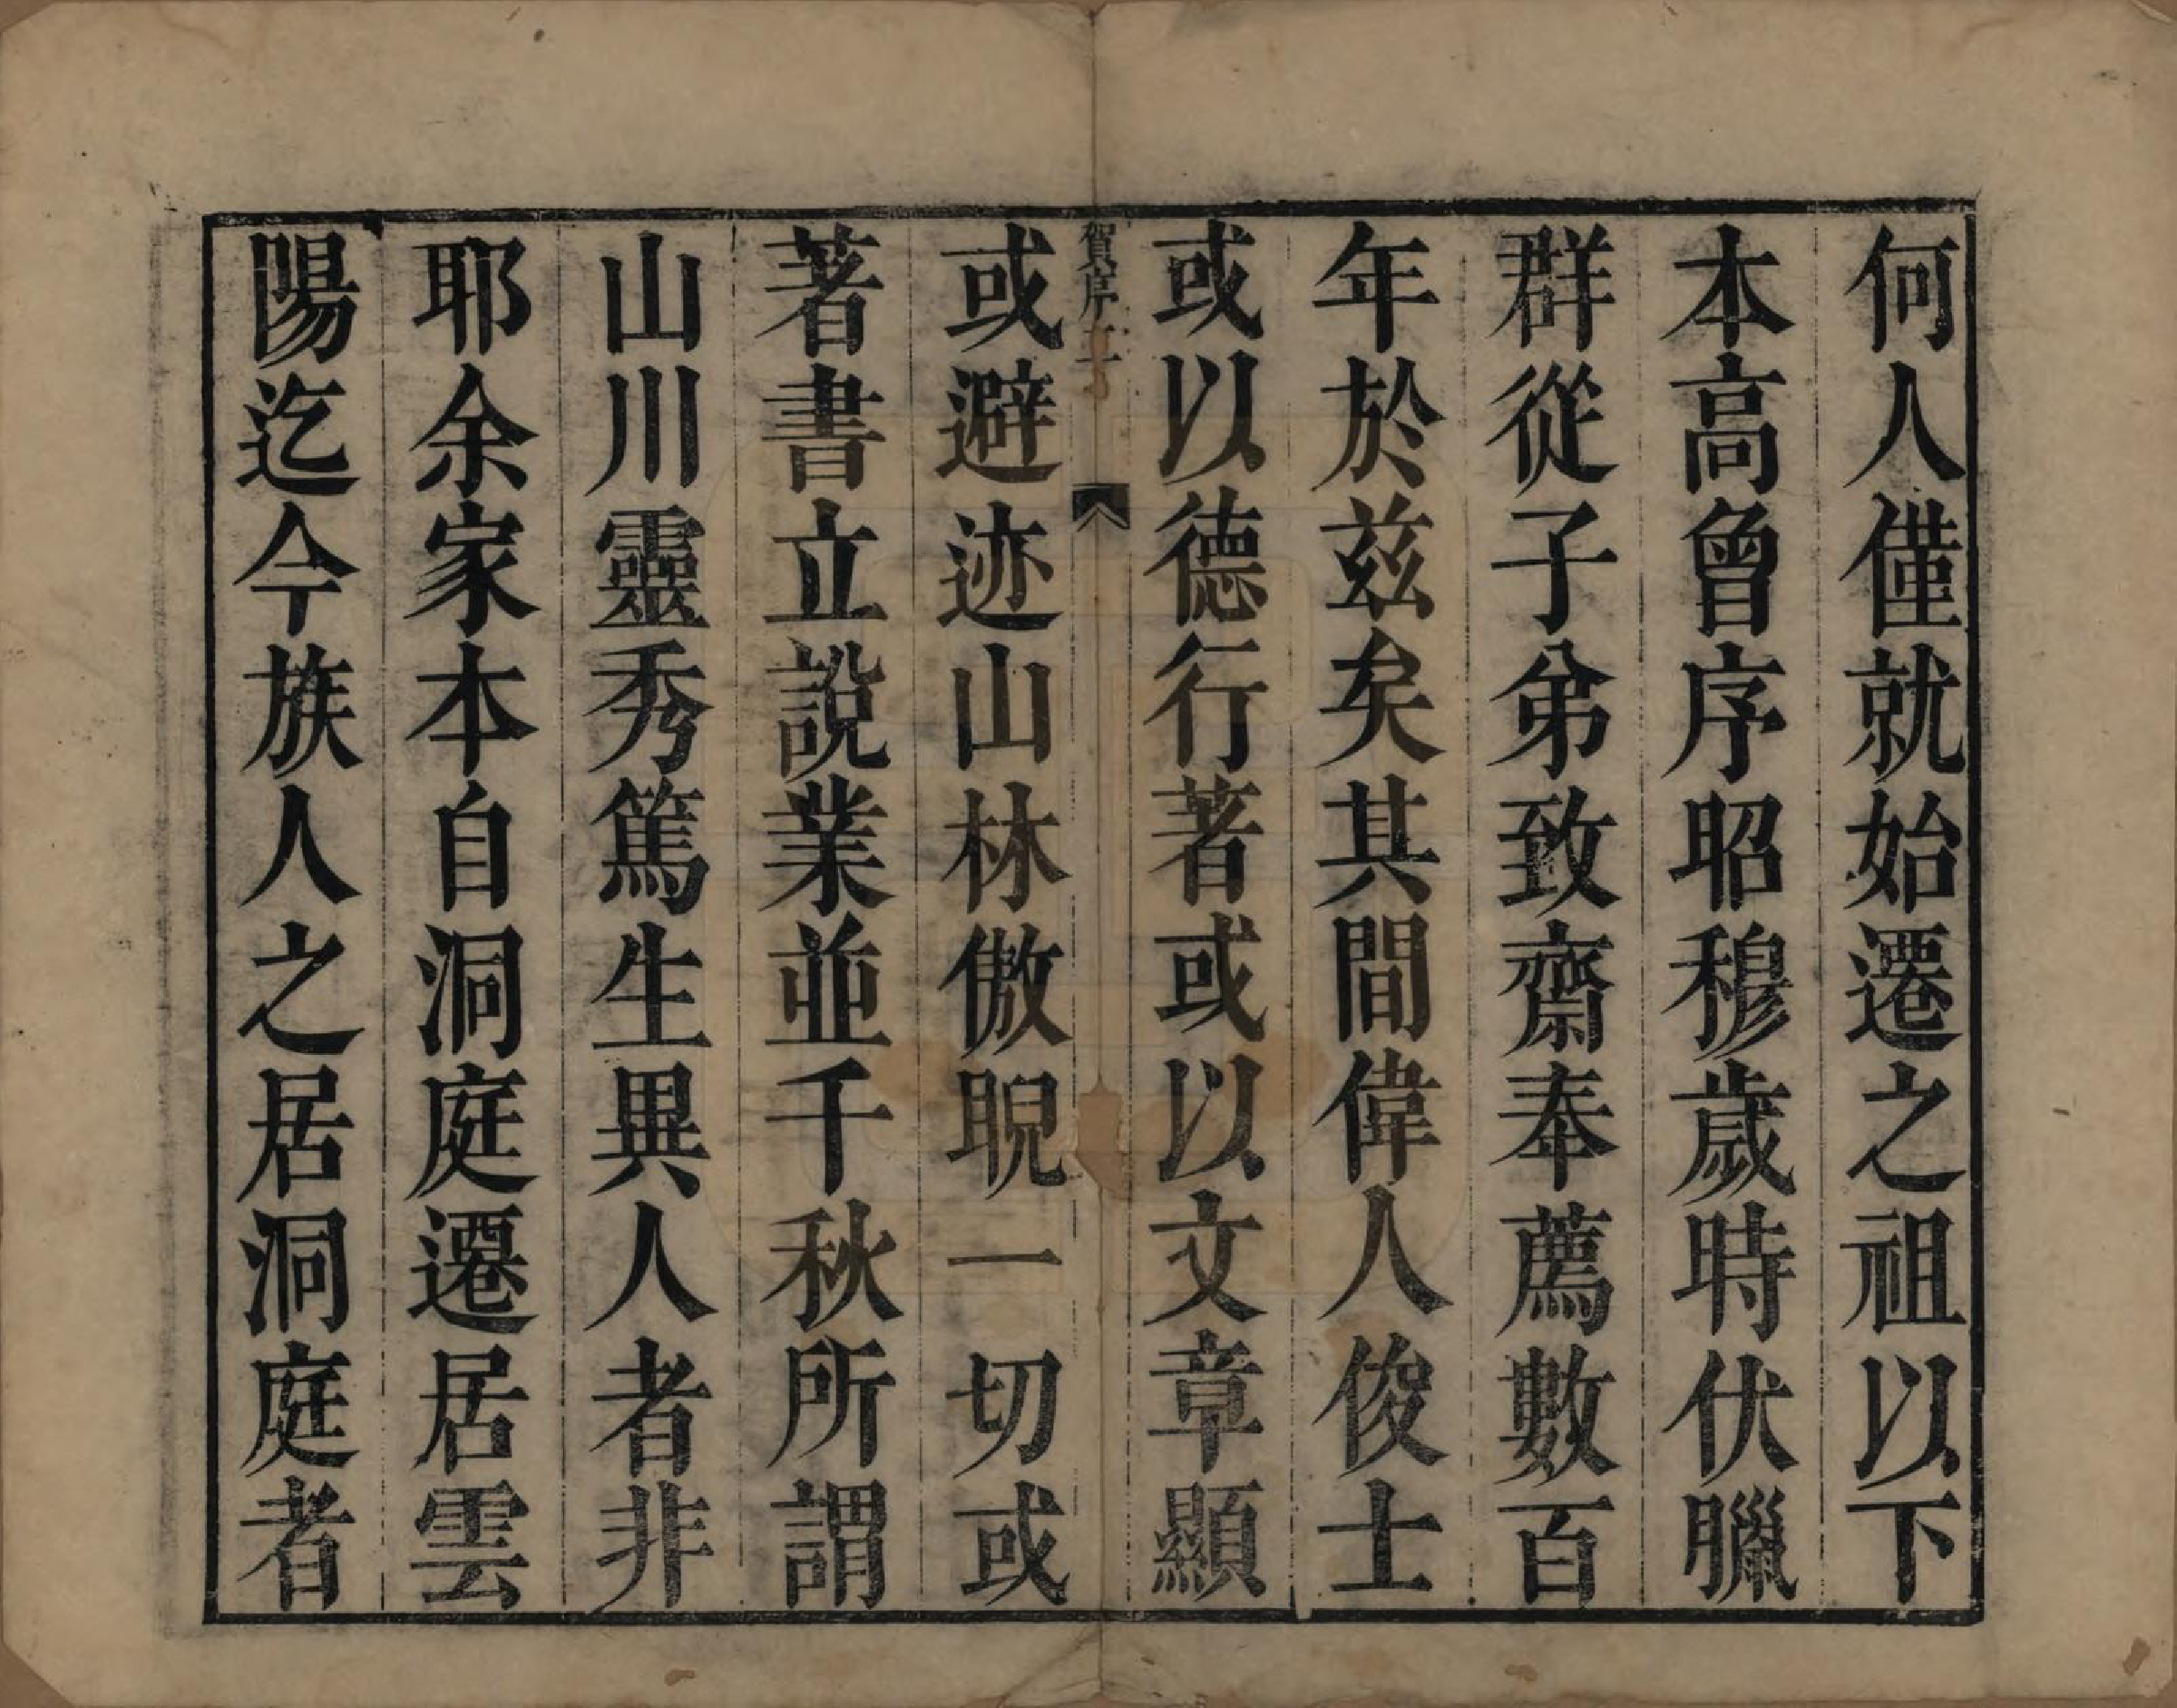 何人僅就始遷之祖以下
本高曾序昭穆歲時伏臘
群從子弟致齋奉薦數百
年於茲矣其間偉人俊士
或以德行著或以文章顯
賀序 二
或避迹山林傲睨一切或
著書立說業並千秋所謂
山川靈秀篤生異人者非
耶余家本自洞庭遷居雲
陽迄今族人之居洞庭者